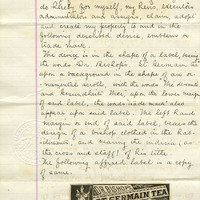 do Hereby for myself, my Heirs, executors
administrators and assigns, claim, adopt
and create my property to and in the
following described device, emblem or
trade mark.
The device is in the shape of a label, having
the words Dr. Bishop's St Germain tea
upon a background in the shape of an or-
namental scroll, with the words
and upon the lower
of said label, the words trade mark also
appear upon said label. The left Hand
margin or end of said label, bears the
design of a bishop clothed in the
vestments, and bearing the
the cross and staff of his
The following affixed label is a copy
of same.
DR. BISHOP'S
ST GERMAIN TEA